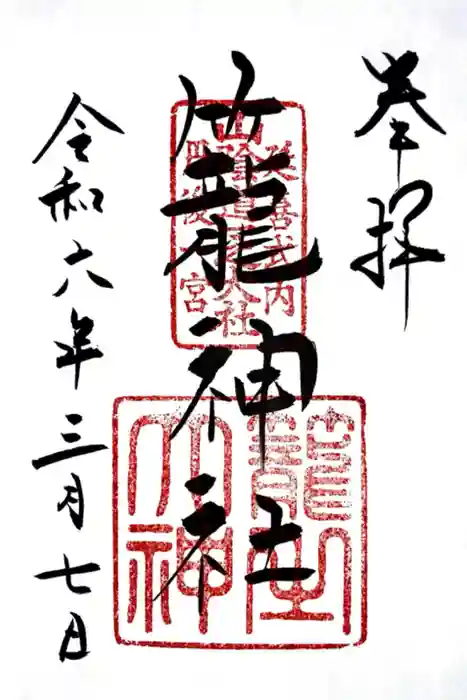 奉拝
籠神社
延喜式内
山陰道一大社
丹後一宮
籠之
大神
令和六年三月七日